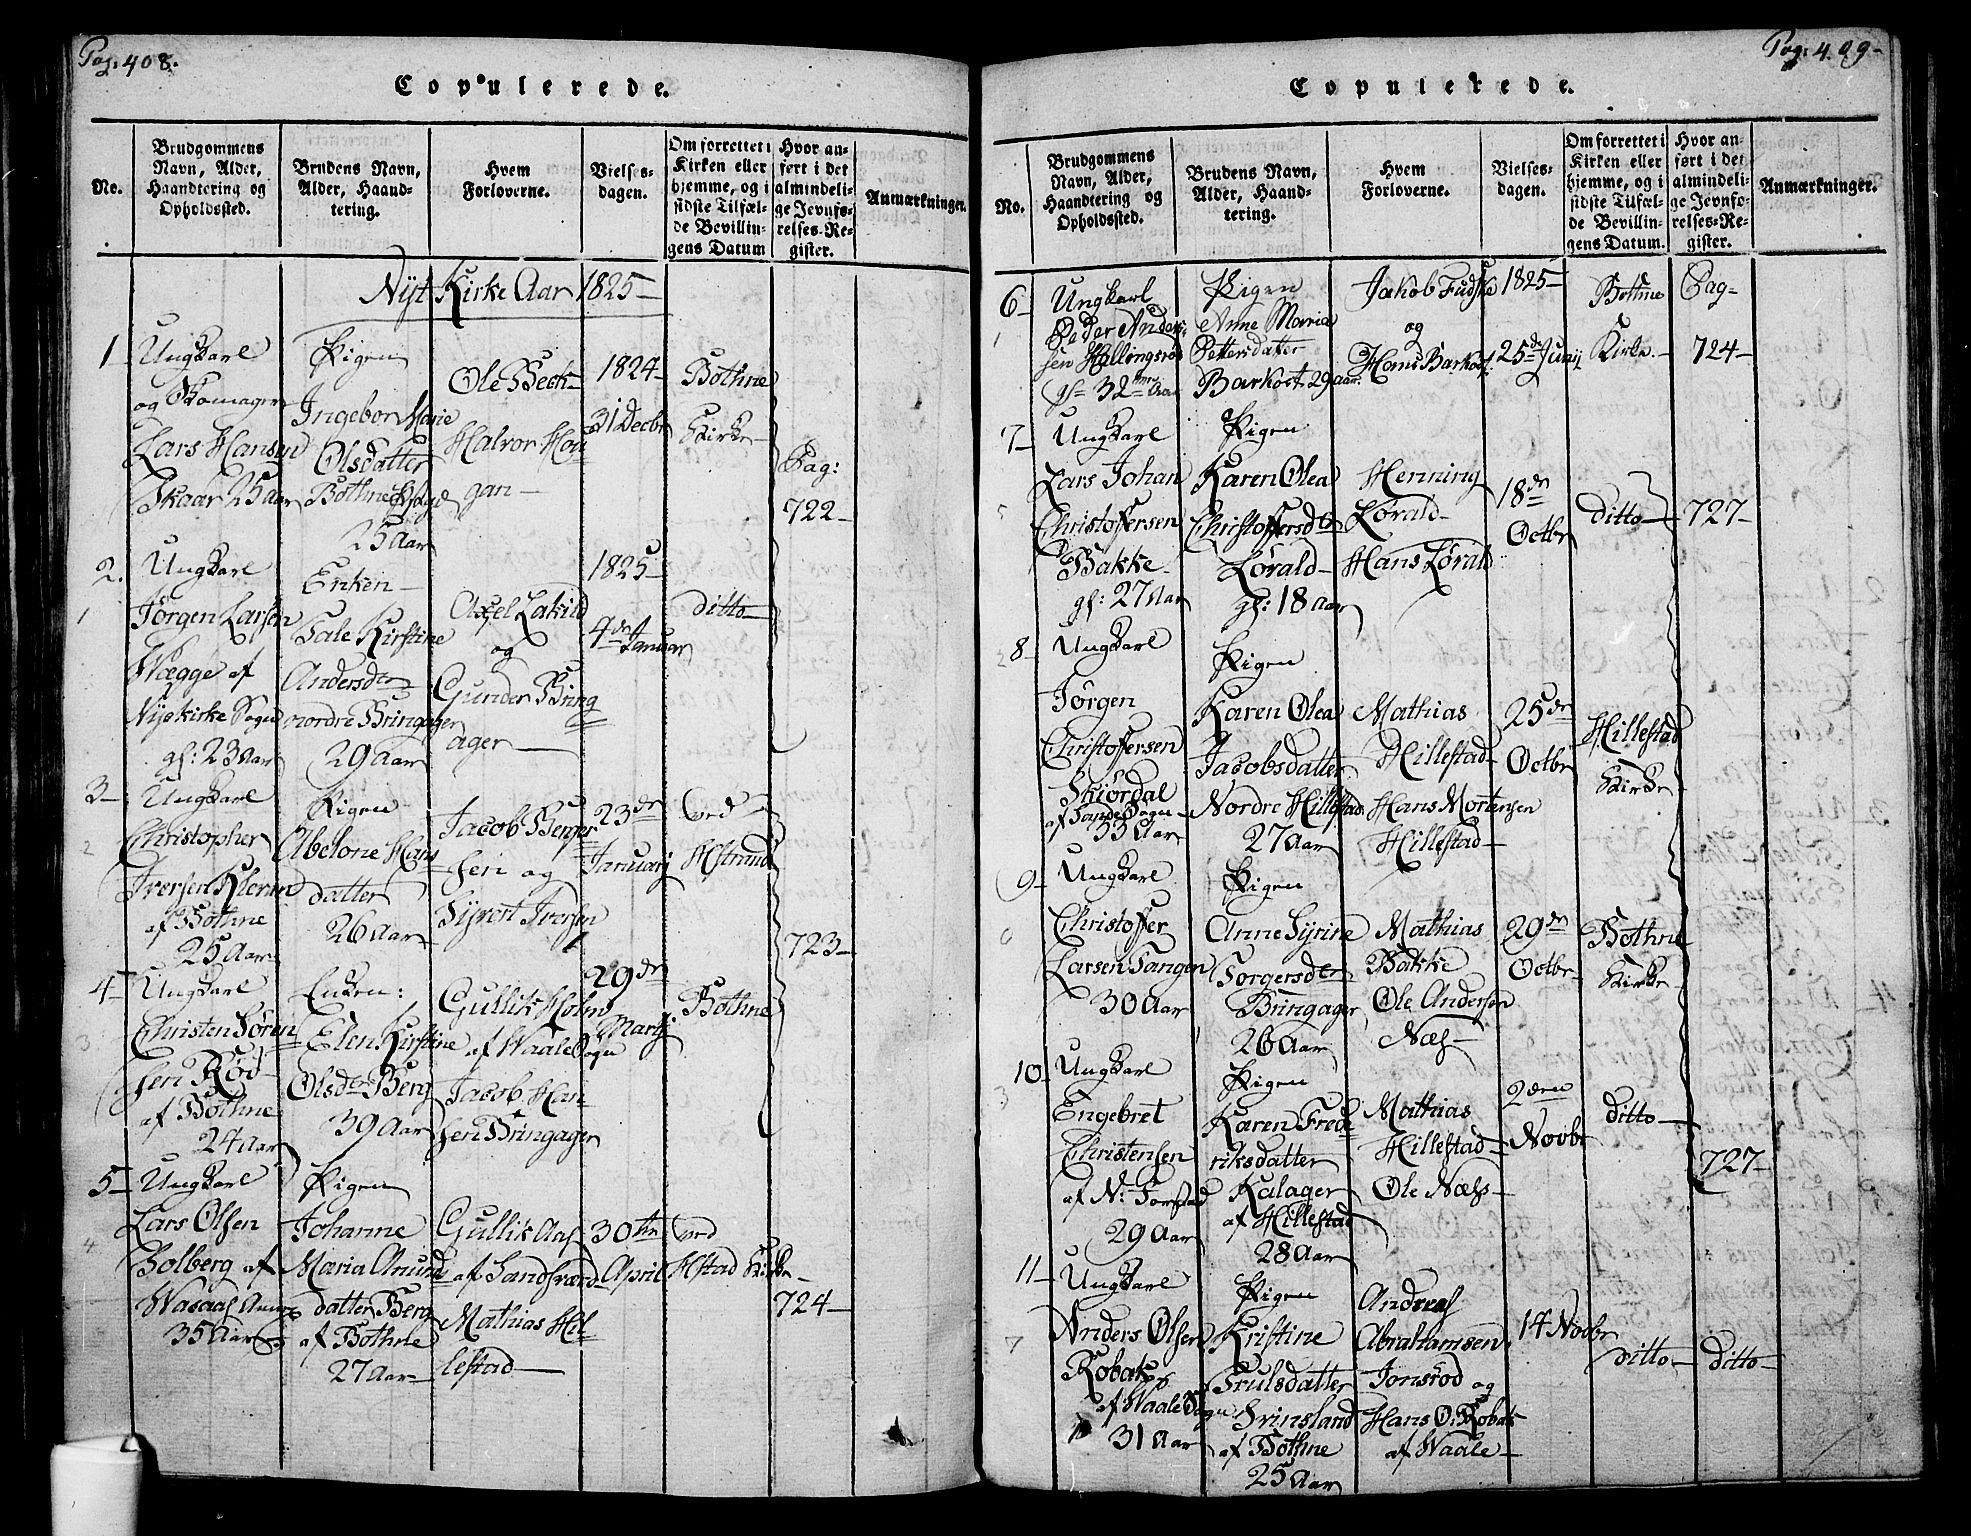 Pag: 408.
Copulerede.
No.
Brudgommens
Navn, Alder,
Haandtering og
Opholdssted.
Brudens Navn,
Alder, Haand-
tering.
Hvem
Forloverne.
Vielses-
dagen.
Om forrettet i
Kirken eller
hjemme, og i
sidste Tilfæl-
de Bevillin-
gens Datum
Hvor an-
ført i det
almindeli-
ge Jevnfø-
relses-Re-
gister.
Anmærkninger.
Nÿt Kirke Aar 1825
1
Ungkarl
og Skomager
Lars Hansen
Skaar 25 aar
Pigen
Ingebor Marie
Olsdatter
Bothne
25 Aar
Ole Beck
Halvor Hou
gan
1824
31 Decbr
Bothne
Kirke
Pag:
722
2.
Ungkarl
Jørgen Larsen
Wægge af
Nÿekirke Sogn
gl: 23 Aar
Enken
Tale Kirstine
Andersdtr
nordre Bringager
29 Aar
Axel
og
Gunder Bring
ager
1825
4de Januar
ditto
3
Ungkarl
Christopher
Iversen
af Bothne
25 Aar
Pigen
Abelone Hans
datter
26 Aar
Jacob Berger
sen og
Syvert Iversen
23de
Januarÿ
ved
Hstrand
723
4
Ungkarl
Christen Søren
sen Röd
af Bothne
24 aar
Enken:
Elen Kirstine
Olsdtr Berg
39 Aar
Gullik Holm
af Waale Sogn
Jacob Han
sen Bringager
29de
Martj
Bothne
5
Ungkarl
Lars Olsen
Solberg af
35 Aar
Pigen
Johanne
Maria Amund
datter Berg
af Bothne
27 Aar
Gullik Aas
af Sandsværd
Mathias Hil
lestad
30te
April
ved
Hstad Kirke
724
Pag: 409
Copulerede.
No.
Brudgommens
Navn, Alder,
Haandtering og
Opholdssted.
Brudens Navn,
Alder, Haand-
tering.
Hvem
Forloverne.
Vielses-
dagen.
Om forrettet i
Kirken eller
hjemme, og i
sidste Tilfæl-
de Bevillin-
gens Datum.
Hvor an-
ført i det
almindeli-
ge Jevnfø-
relses-Re-
gister.
Anmærkninger.
6
Ungkarl
Peder Ander
sen Hallingsröd
32 Aar
Pigen
Anne Maria
Pettersdatter
Barkost 29 aar
Jakob Fuske
og
Hans Barkost
1825
25de Junij
Bothne
Kirke
Pag
724
7
Ungkarl
Lars Johan
Christoffersen
Bakke
gl: 27 Aar
Pigen
Karen Olea
Christoffersdtr
Lörald
gl: 18 aar
Henning
Lörald
Hans Lörald
18de
Octbr
ditto
727
8
Ungkarl
Jörgen
Christoffersen
Skiördal
33 Aar
Pigen
Karen Olea
Jacobsdatter
Nordre Hillestad
27 Aar
Mathias
Hillestad
Hans Mortensen
Hillestad
25de
Octbr
Hillestad
Kirke
9
Ungkarl
Christoffer
Larsen Tangen
30 Aar
Pigen
Anne Syrine
Torgersdtr
Bringager
26 Aar
Mathias
Bakke
Ole Andersen
Næs
29de
Octbr
Bothne
Kirke
10
Ungkarl
Engebret
Christensen
af N: Forstad
29 Aar
Pigen
Karen Frede
riksdatter
Kalager
af Hillestad
28 Aar
Mathias
Hillestad
Ole Næss
2den
Novbr
ditto
727
11
Ungkarl
Anders Olsen
Robak
af Waale Sogn
31 Aar
Pigen
Kristine
Trulsdatter
Grinsland
af Bothne
25 Aar
Andreas
Abrahamsen
Jonsröd og
Hans O. Robak
af Waale
14 Novbr
ditto
ditto